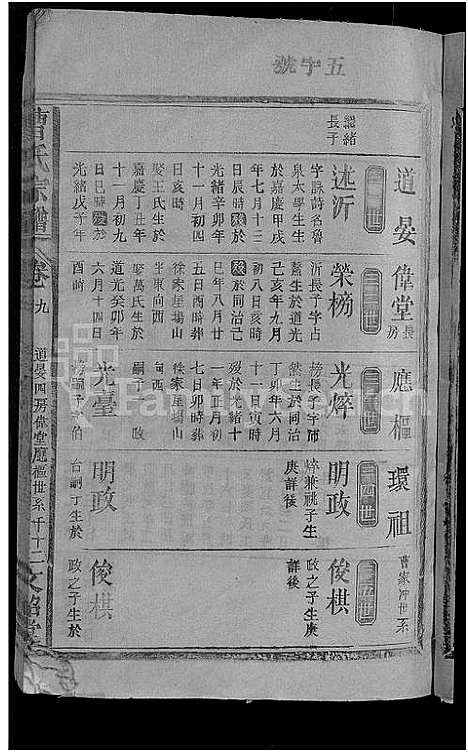 五字號
道晏
偉堂
長房
應樞
環祖
曹家沖世系
繼緒
長子
述沂
字詠詩名魯
泉太學生生
於嘉慶甲戌
年七月十三
日辰時歿於
光緒辛卯年
十一月初四
日亥時
娶王氏生於
嘉慶丁丑年
十一月初九
日巳時歿於
光緒戊子年
榮榜
沂長子字占
鰲生於道光
己亥年九月
初八日亥時
歿於同治己
巳年八月廿
五日酉時葬
徐家屋場山
坐東向西
娶萬氏生於
道光癸卯年
六月十四日
酉時
光焠
榜長子字沛
然生於同治
丁卯年六月
十一日寅時
歿於光緒十
一年正月初
七日卯時葬
徐家屋場山
向西
嗣子 政
光臺
明政
焠兼祧子生
庚詳後
明政
台嗣丁生於
俊棋
政之子生庚
詳後
俊棋
政之子生於
曹氏宗譜
卷九
道晏四房偉堂應樞世系